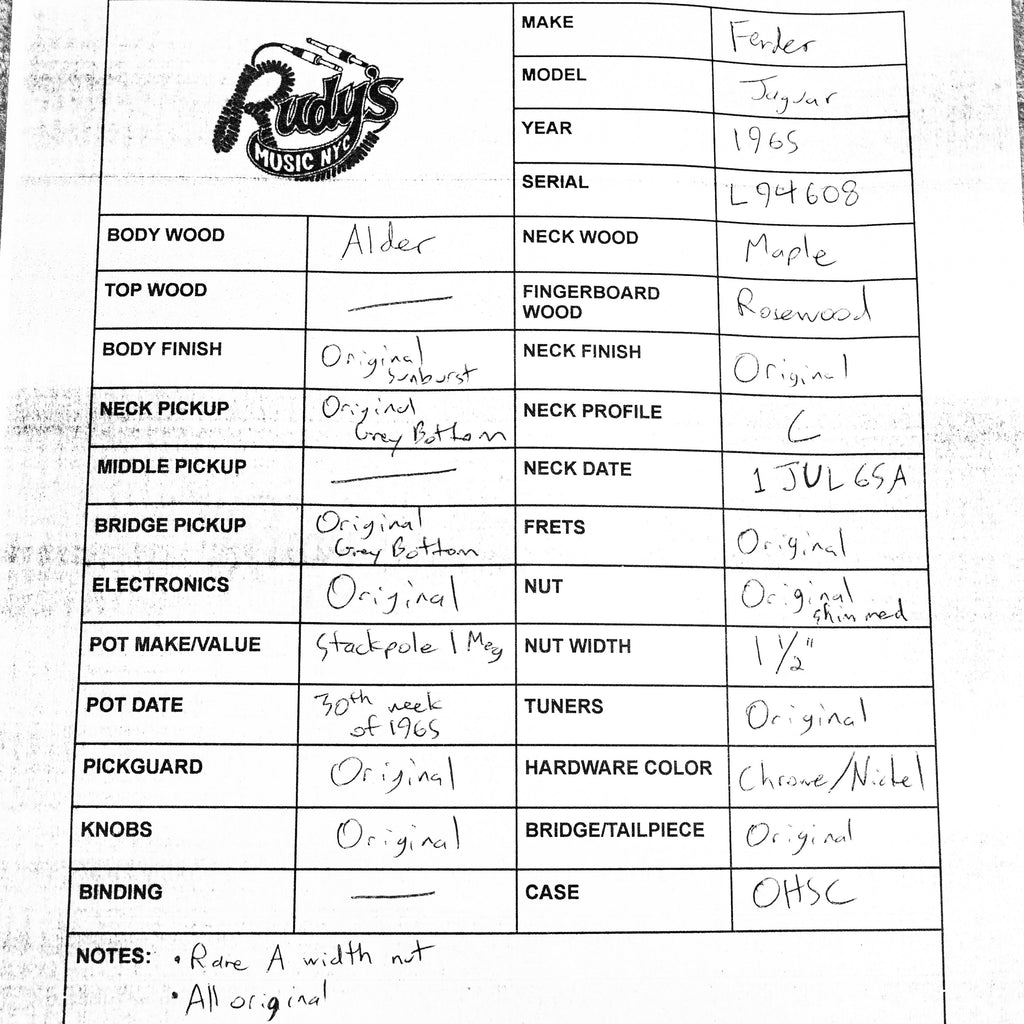 Rudy's
MUSIC NYC
MAKE Fender
MODEL Jaguar
YEAR 1965
SERIAL L94608
BODY WOOD Alder NECK WOOD Maple
TOP WOOD — FINGERBOARD WOOD Rosewood
BODY FINISH Original sunburst NECK FINISH Original
NECK PICKUP Original Grey Bottom NECK PROFILE C
MIDDLE PICKUP — NECK DATE 1 JUL 65A
BRIDGE PICKUP Original Grey Bottom FRETS Original
ELECTRONICS Original NUT Original shimmed
POT MAKE/VALUE Stackpole 1 Meg NUT WIDTH 1 1/2"
POT DATE 30th week of 1965 TUNERS Original
PICKGUARD Original HARDWARE COLOR Chrome/Nickel
KNOBS Original BRIDGE/TAILPIECE Original
BINDING — CASE OHSC
NOTES: • Rare A width nut
• All original